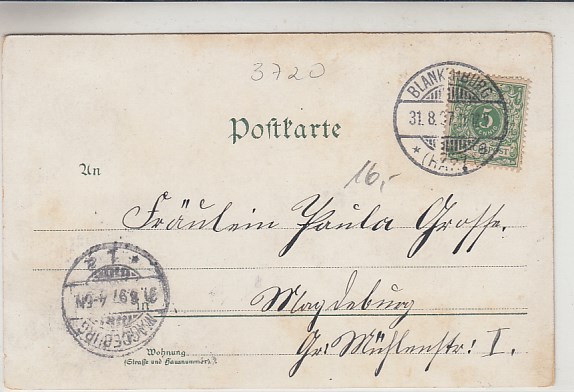 3720
BLANKENBURG
31.8.97
* (HARZ) *
5
Postkarte
An
16,-
Fräulein Paula Grosse.
MAGDEBURG
31.8.97 4-5N
* 1 *
in
Magdeburg
Wohnung
(Straße und Hausnummer)
Gr. Mühlenstr: I.